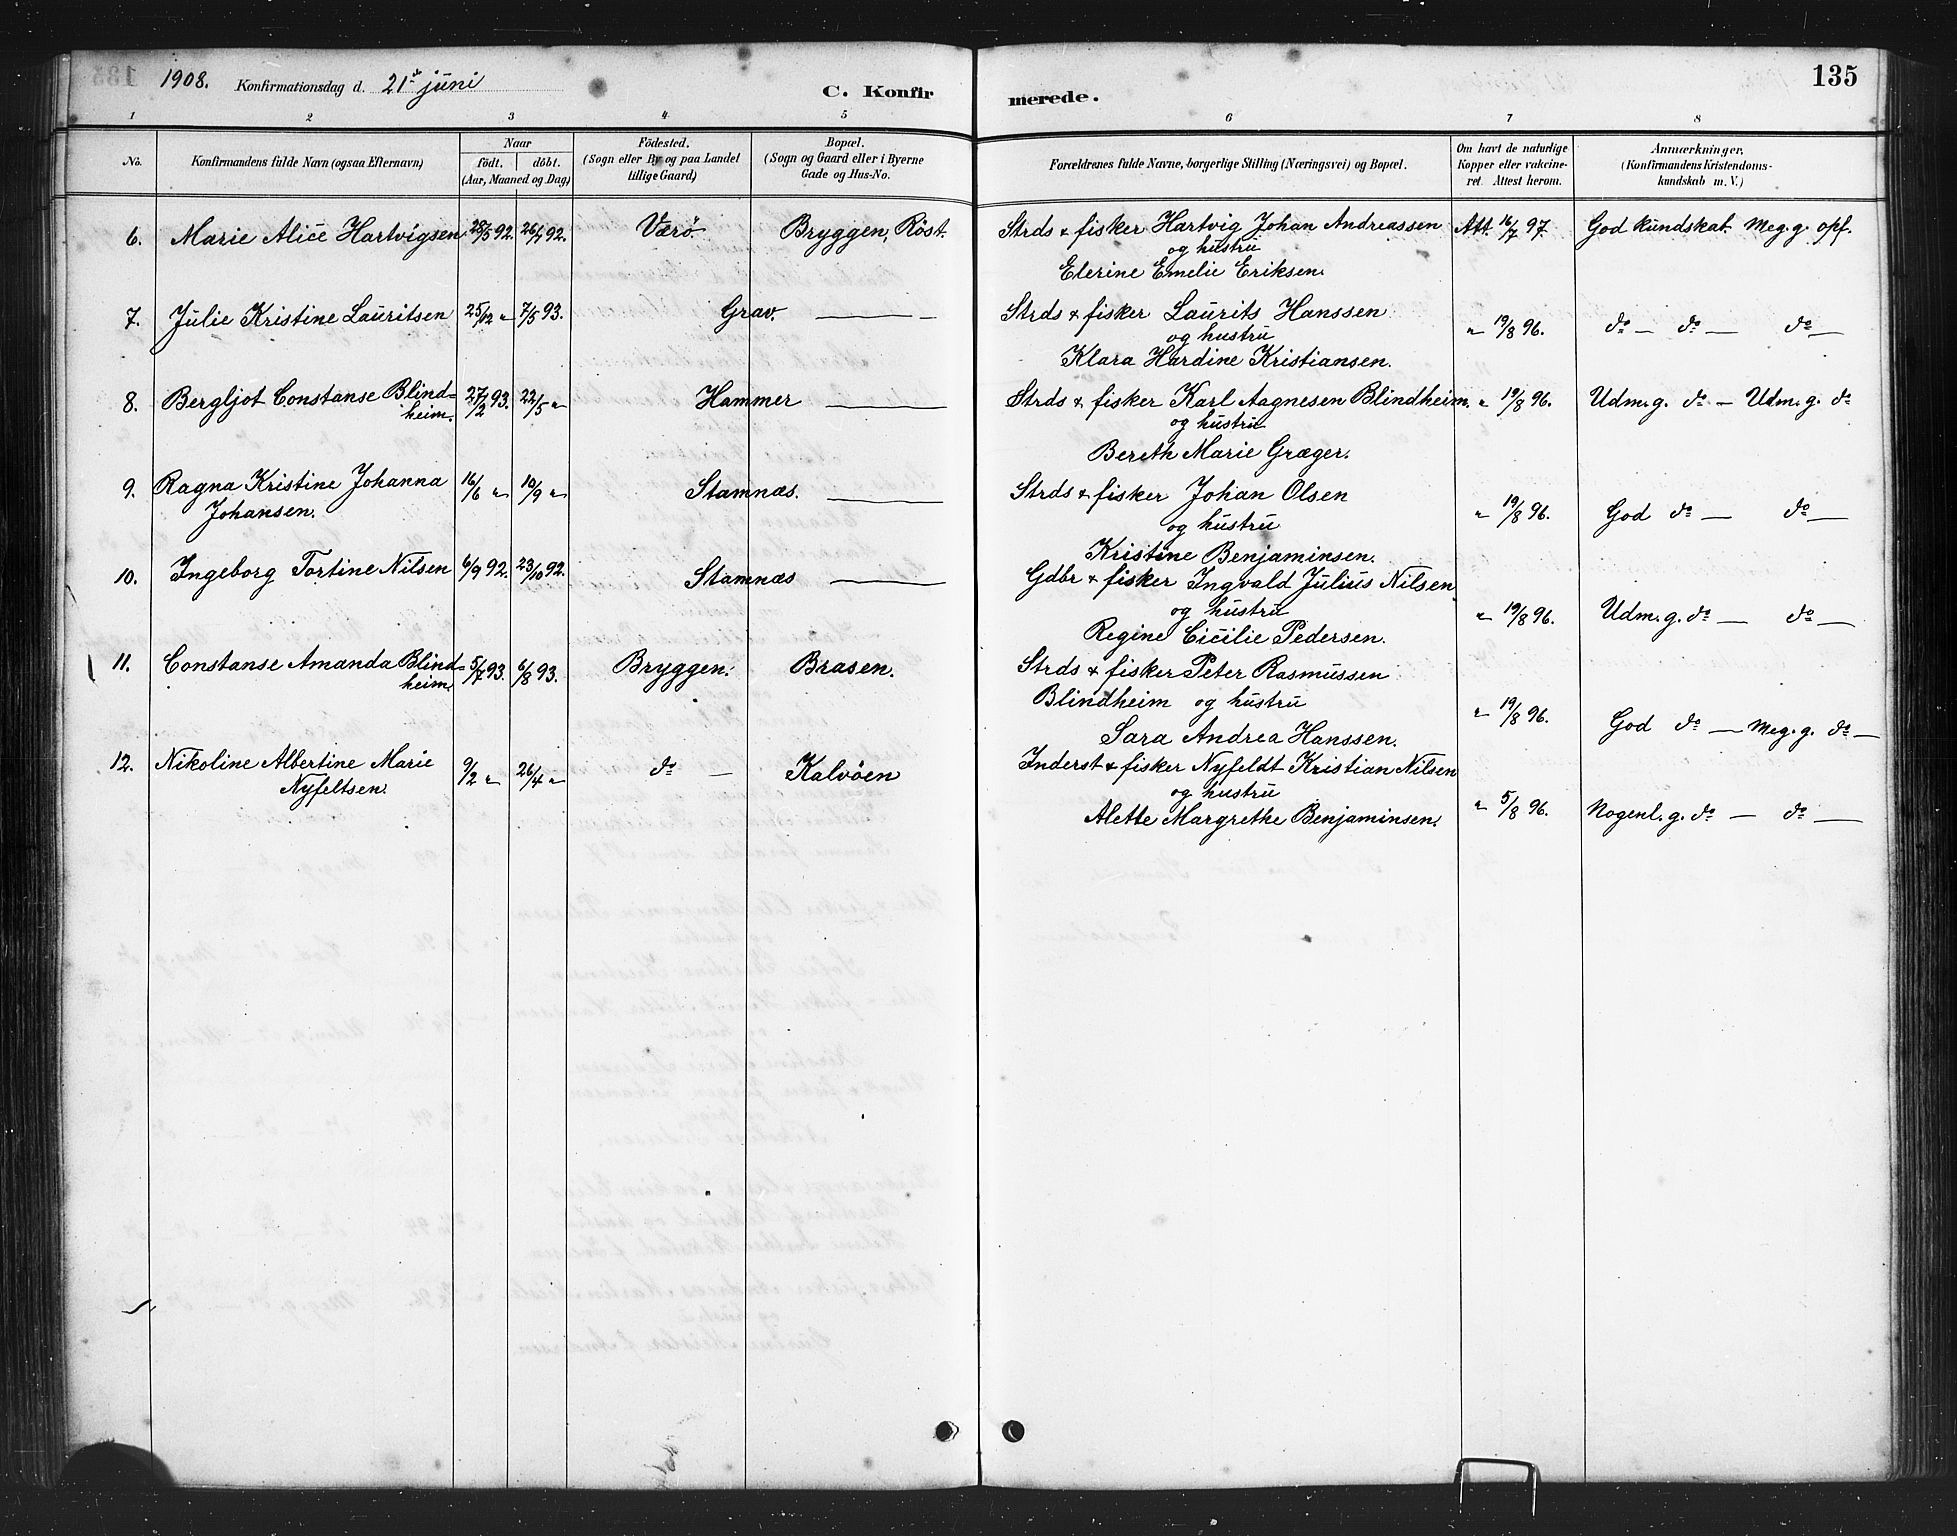 1908. Konfirmationsdag d. 21de juni
C. Konfirmerede.
135
1 2 3 4 5 6 7 8
No.
Konfirmandens fulde Navn (ogsaa Efternavn)
Naar
födt. döbt.
(Aar, Maaned og Dag)
Födested.
(Sogn eller By og paa Landet
tillige Gaard)
Bopæl.
(Sogn og Gaard eller i Byerne
Gade og Hus-No.
Forældrenes fulde Navne, borgerlige Stilling (Næringsvei) og Bopæl.
Om havt de naturlige
Kopper eller vakcine-
ret. Attest herom.
Anmærkninger.
(Konfirmandens Kristendoms-
kundskab m. V.)
6. Marie Alice Hartvigsen 28/5 92. 26/7 92. Værö Bryggen, Röst. Strds & fisker Hartvig Johan Andreassen Att 16/7 97 God kundskab Meg. g. opf.
og hustru
Elerine Emelie Eriksen.
7. Julie Kristine Lauritsen 25/12 " 7/5 93. Grav. — Strds & fisker Laurits Hanssen " 19/8 96. do — do — do —
og hustru
Klara Hardine Kristiansen.
8. Bergljot Constanse Blind=
heim. 27/2 93. 22/5 " Hammer — Strds & fisker Karl Aagnesen Blindheim. " 19/8 96. Udm. g. do — Udm. g. do
og hustru
Bereth Marie Græger.
9. Ragna Kristine Johanna
Johansen. 16/6 " 10/9 " Stamnæs. — Strds & fisker Johan Olsen " 19/8 96. God do — do —
og hustru
Kristine Benjaminsen.
10. Ingeborg Tortine Nilsen 6/9 92. 23/10 92. Stamnæs — Gdbr & fisker Ingvald Julius Nilsen " 19/8 96. Udm. g. do — do —
og hustru
Regine Cicilie Pedersen.
11. Constanse Amanda Blind=
heim. 5/7 93. 6/8 93. Bryggen. Brasen. Strds & fisker Peter Rasmussen
Blindheim og hustru " 19/8 96. God do — Meg. g. do —
Sara Andrea Hanssen.
12. Nikoline Albertine Marie
Nyfeltsen. 9/2 " 26/4 " do — Kalvöen Inderst & fisker Nyfeldt Kristian Nilsen " 5/8 96. Nogenl. g. do — do —
og hustru
Alette Margrethe Benjaminsen.